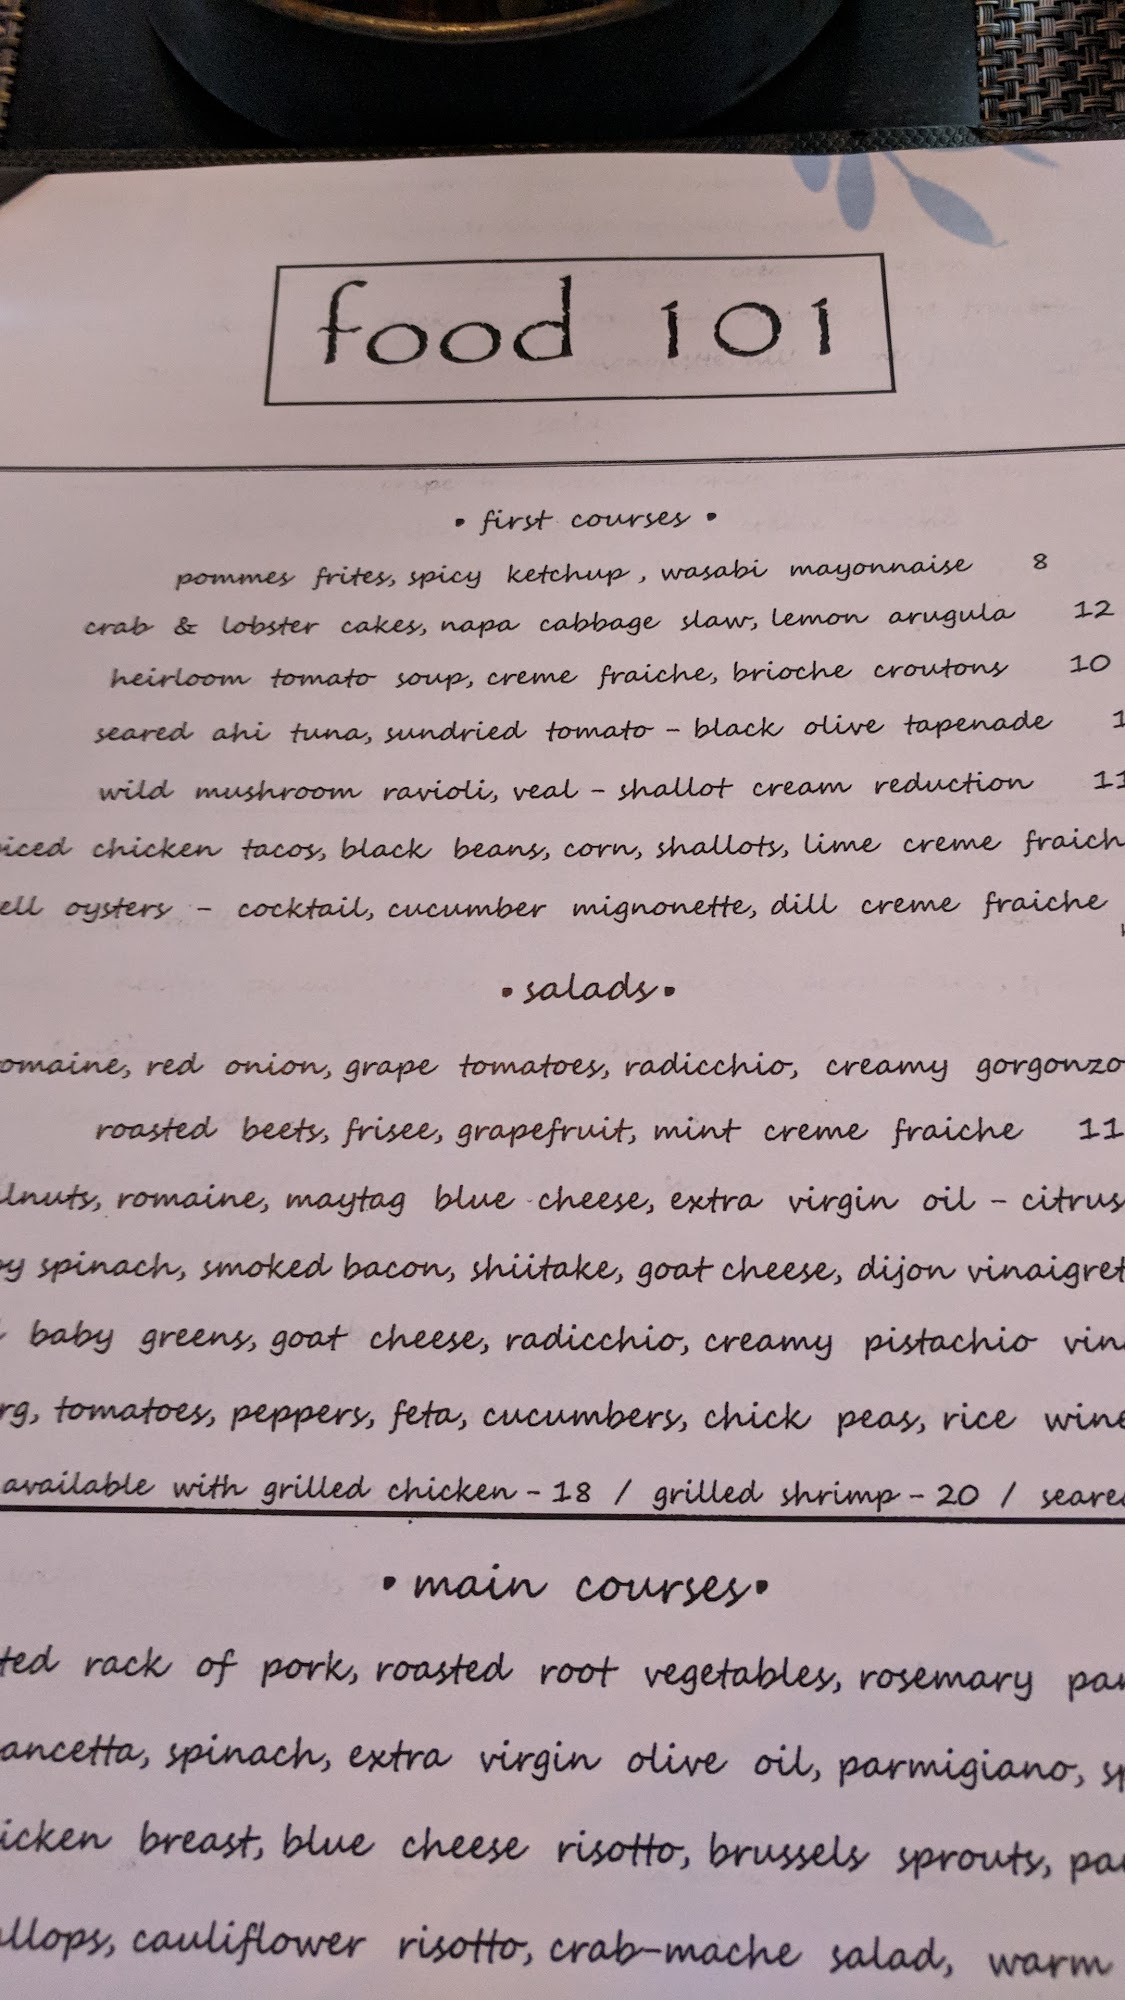 food 101
• first courses •
pommes frites, spicy ketchup , wasabi mayonnaise 8
crab & lobster cakes, napa cabbage slaw, lemon arugula 12
heirloom tomato soup, creme fraiche, brioche croutons 10
seared ahi tuna, sundried tomato - black olive tapenade
wild mushroom ravioli, veal - shallot cream reduction 11
chicken tacos, black beans, corn, shallots, lime creme
oysters - cocktail, cucumber mignonette, dill creme fraiche
• salads •
red onion, grape tomatoes, radicchio, creamy
roasted beets, frisee, grapefruit, mint creme fraiche 11
romaine, maytag blue cheese, extra virgin oil - citrus
spinach, smoked bacon, shiitake, goat cheese, dijon
baby greens, goat cheese, radicchio, creamy pistachio
tomatoes, peppers, feta, cucumbers, chick peas, rice wine
available with grilled chicken - 18 / grilled shrimp - 20 /
• main courses •
rack of pork, roasted root vegetables, rosemary
spinach, extra virgin olive oil, parmigiano,
breast, blue cheese risotto, brussels sprouts,
cauliflower risotto, crab-mache salad, warm